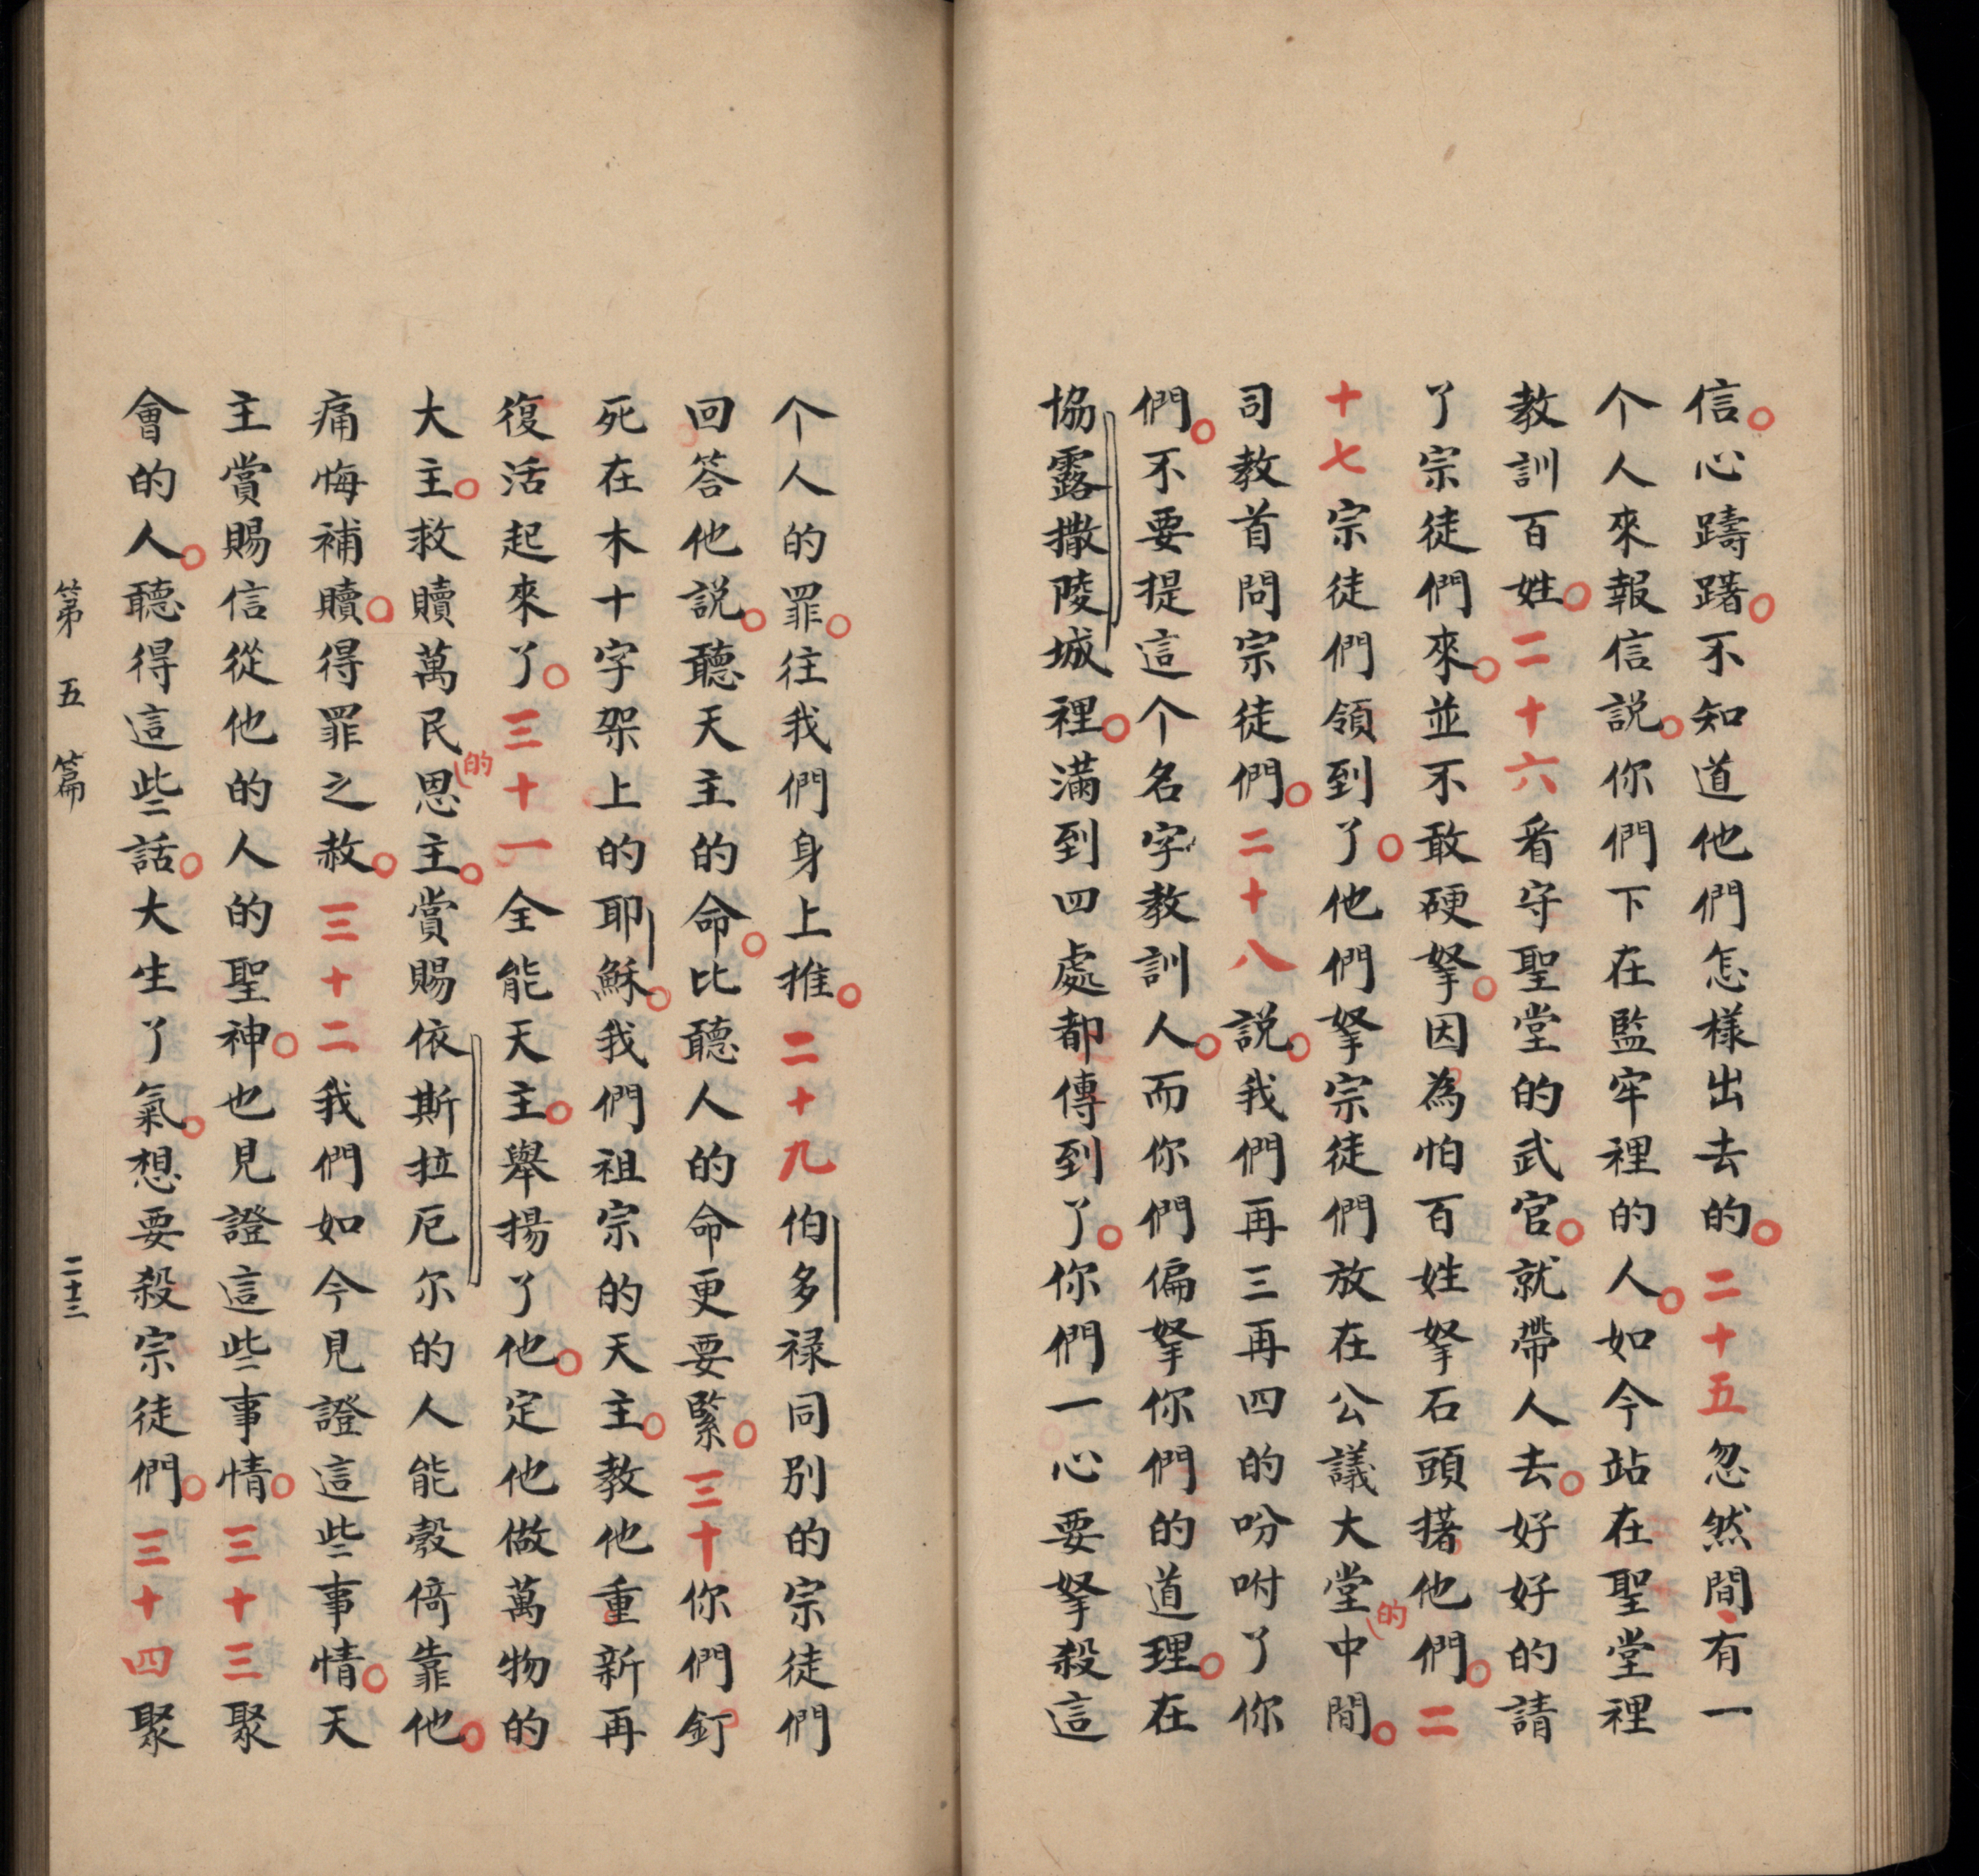 信。心躊躇。不知道他們怎樣出去的。二十五忽然間有一
个人來報信説。你們下在監牢裡的人。如今站在聖堂裡
教訓百姓。二十六看守聖堂的武官。就帶人去。好好的請
了宗徒們來。並不敢硬拏。因為怕百姓拏石頭撦他們。二
十七宗徒們領到了。他們拏宗徒們放在公議大堂的中間。
司教首問宗徒們。二十八説。我們再三再四的吩咐了你
們。不要提這个名字教訓人。而你們偏拏你們的道理。在
協露撒陵城裡。滿到四處都傳到了。你們一心要拏殺這
个人的罪。往我們身上推。二十九伯多禄同別的宗徒們
回答他説。聽天主的命。比聽人的命更要緊。三十你們釘
死在木十字架上的耶穌。我們祖宗的天主。教他重新再
復活起來了。三十一全能天主。舉揚了他。定他做萬物的
大主。救贖萬民的恩主。賞賜依斯拉厄尔的人能彀倚靠他。
痛悔補贖。得罪之赦。三十二我們如今見證這些事情。天
主賞賜信從他的人的聖神。也見證這些事情。三十三聚
會的人。聽得這些話。大生了氣。想要殺宗徒們。三十四聚
第五篇
二十三